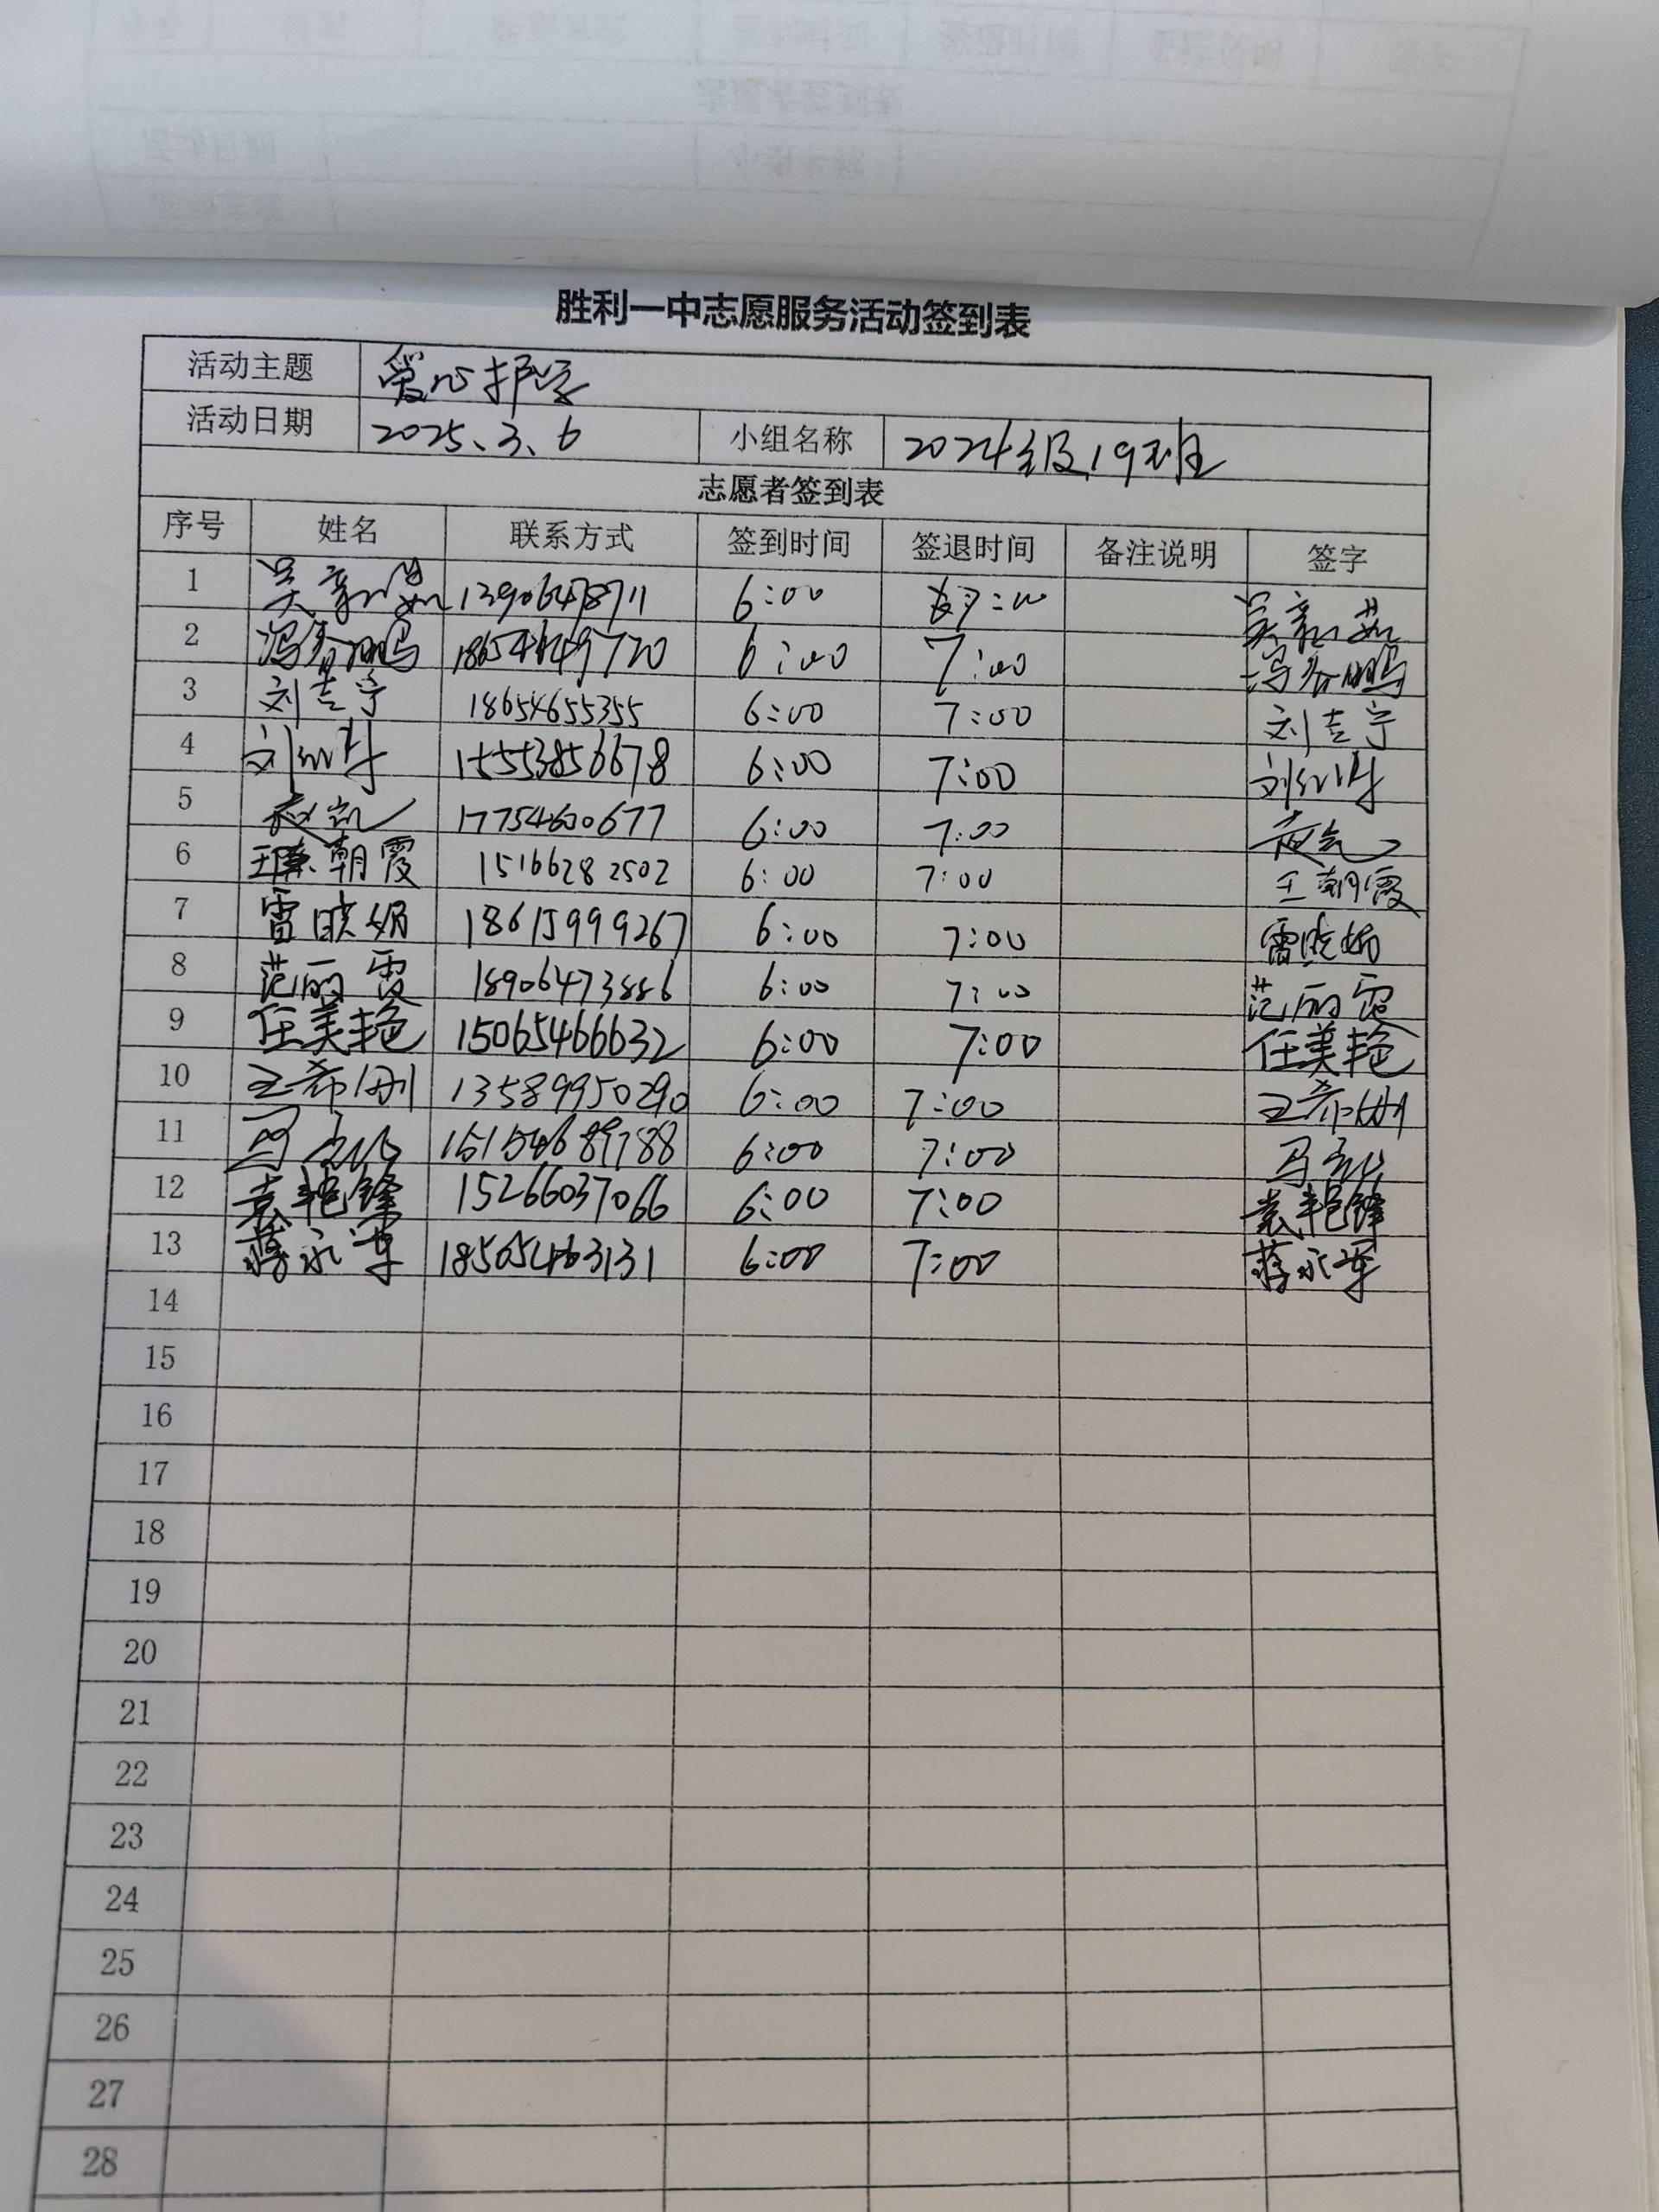 胜利一中志愿服务活动签到表
活动主题 爱心护学
活动日期 2025.3.6 小组名称 2024级19班
志愿者签到表
序号 姓名 联系方式 签到时间 签退时间 备注说明 签字
1 13906478711 6:00 7:00
2 冯春鹏 6:00 7:00 冯春鹏
3 刘吉宁 18654655355 6:00 7:00 刘吉宁
4 15553856678 6:00 7:00
5 赵凯 17754600677 6:00 7:00 赵凯
6 王朝霞 15166282502 6:00 7:00 王朝霞
7 雷晓娟 18615999267 6:00 7:00 雷晓娟
8 范丽霞 18906473886 6:00 7:00 范丽霞
9 任美艳 15065466632 6:00 7:00 任美艳
10 王希刚 13589950290 6:00 7:00 王希刚
11 马 6:00 7:00 马
12 袁艳锋 15266037066 6:00 7:00 袁艳锋
13 蒋永军 18505463131 6:00 7:00 蒋永军
14
15
16
17
18
19
20
21
22
23
24
25
26
27
28